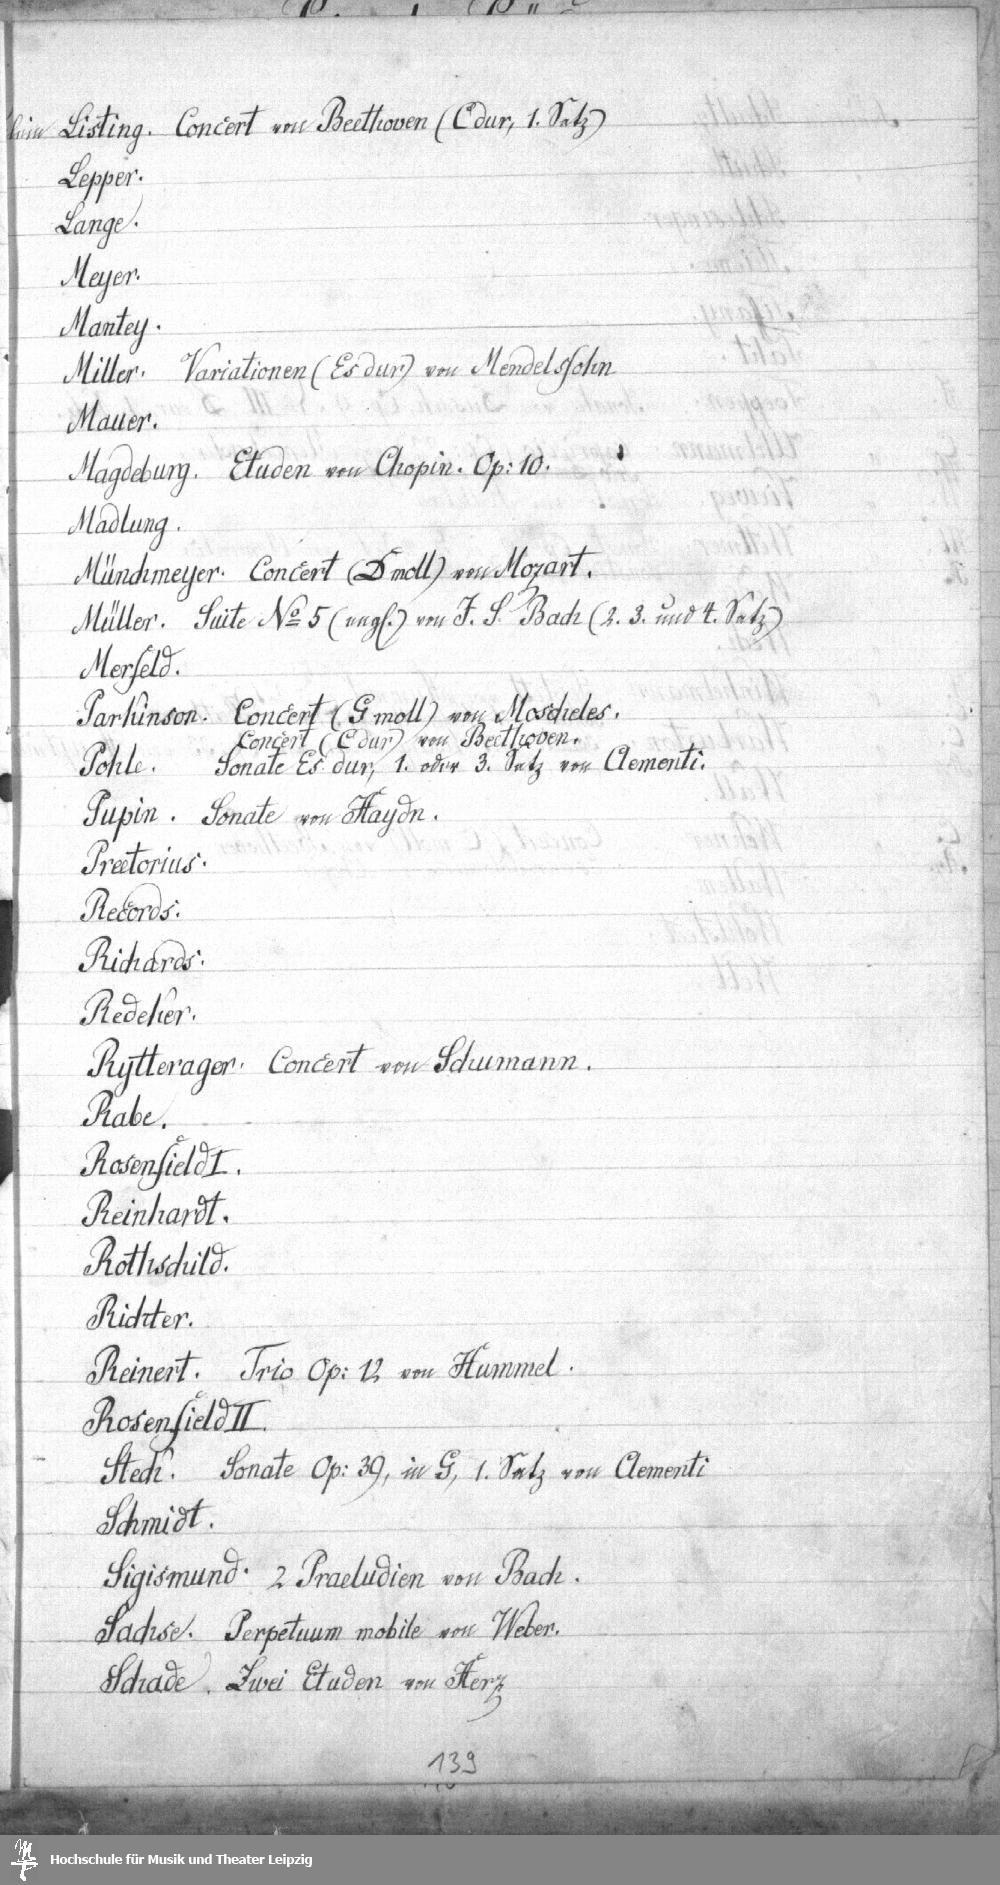 Listing. Concert von Beethoven (C dur, 1. Satz)
Lepper.
Lange.
Meyer.
Mantey.
Miller. Variationen (Es dur) von Mendelssohn
Mauer.
Magdeburg. Etuden von Chopin. Op: 10.
Madlung.
Münchmeyer. Concert (D moll) von Mozart.
Müller. Suite No 5 (engl.) von J. S. Bach (2. 3. und 4. Satz)
Merfeld.
Parkinson. Concert (G moll) von Moscheles.
Concert (C dur) von Beethoven.
Pohle. Sonate Es dur, 1. oder 3. Satz von Clementi.
Pupin. Sonate von Haydn.
Praetorius.
Records.
Richards.
Redeker.
Rytterager. Concert von Schumann.
Rabe.
Rosenfield I.
Reinhardt.
Rothschild.
Richter.
Reinert. Trio Op: 12 von Hummel.
Rosenfield II.
Steck. Sonate Op: 39, in G, 1. Satz von Clementi
Schmidt.
Sigismund. 2 Praeludien von Bach.
Sachse. Perpetuum mobile von Weber.
Schade. Zwei Etuden von Herz
139
Hochschule für Musik und Theater Leipzig